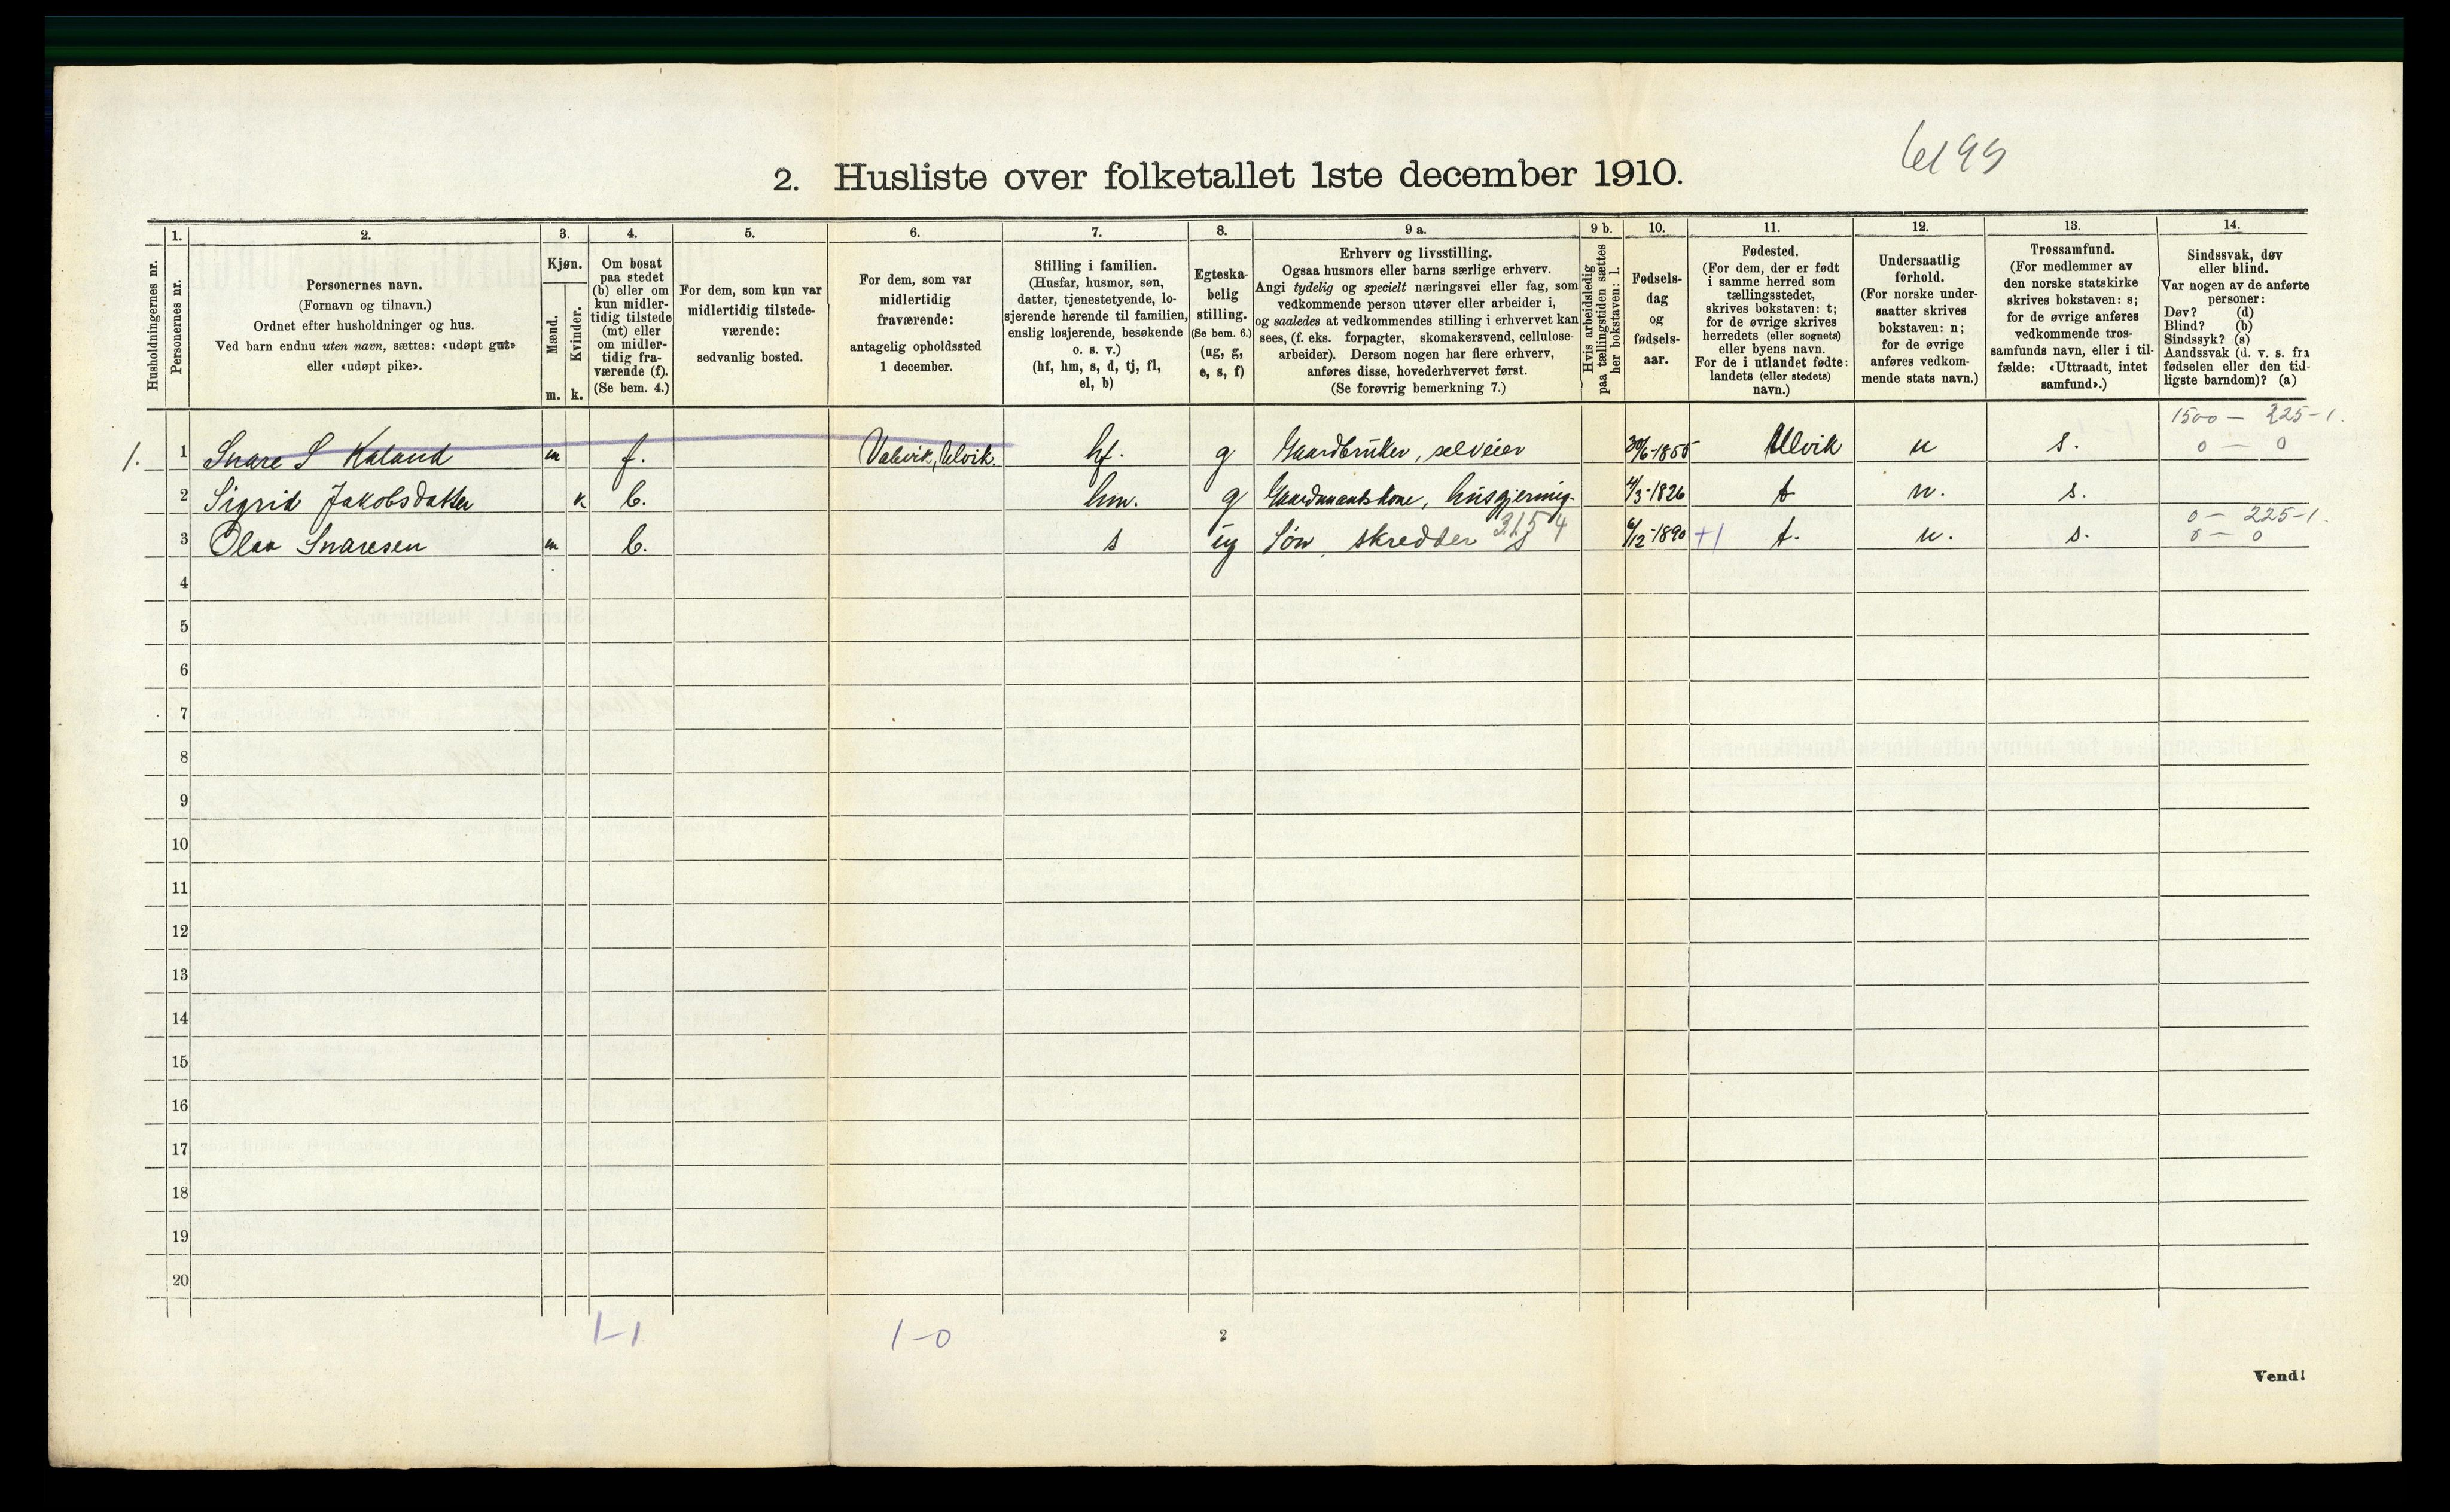 6199
2. Husliste over folketallet 1ste december 1910.
Husholdningernes nr.
1.
Personernes nr.
2.
Personernes navn.
(Fornavn og tilnavn.)
Ordnet efter husholdninger og hus.
Ved barn endnu uten navn, sættes: «udøpt gut»
eller «udøpt pike».
3.
Kjøn.
Mænd.
Kvinder.
m. k.
4.
Om bosat
paa stedet
(b) eller om
kun midler-
tidig tilstede
(mt) eller
om midler-
tidig fra-
værende (f).
(Se bem. 4.)
5.
For dem, som kun var
midlertidig tilstede-
værende:
sedvanlig bosted.
6.
For dem, som var
midlertidig
fraværende:
antagelig opholdssted
1 december.
7.
Stilling i familien.
(Husfar, husmor, søn,
datter, tjenestetyende, lo-
sjerende hørende til familien,
enslig losjerende, besøkende
o. s. v.)
(hf, hm, s, d, tj, fl,
el, b)
8.
Egteska-
belig
stilling.
(Se bem. 6.)
(ug, g,
e, s, f)
9 a.
Erhverv og livsstilling.
Ogsaa husmors eller barns særlige erhverv.
Angi tydelig og specielt næringsvei eller fag, som
vedkommende person utøver eller arbeider i,
og saaledes at vedkommendes stilling i erhvervet kan
sees, (f. eks. forpagter, skomakersvend, cellulose-
arbeider). Dersom nogen har flere erhverv,
anføres disse, hovederhvervet først.
(Se forøvrig bemerkning 7.)
9 b.
Hvis arbeidsledig
paa tællingstiden sættes
her bokstaven: l.
10.
Fødsels-
dag
og
fødsels-
aar.
11.
Fødested.
(For dem, der er født
i samme herred som
tællingsstedet,
skrives bokstaven: t;
for de øvrige skrives
herredets (eller sognets)
eller byens navn.
For de i utlandet fødte:
landets (eller stedets)
navn.)
12.
Undersaatlig
forhold.
(For norske under-
saatter skrives
bokstaven: n;
for de øvrige
anføres vedkom-
mende stats navn.)
13.
Trossamfund.
(For medlemmer av
den norske statskirke
skrives bokstaven: s;
for de øvrige anføres
vedkommende tros-
samfunds navn, eller i til-
fælde: «Uttraadt, intet
samfund».)
14.
Sindssvak, døv
eller blind.
Var nogen av de anførte
personer:
Døv? (d)
Blind? (b)
Sindssyk? (s)
Aandssvak (d. v. s. fra
fødselen eller den tid-
ligste barndom)? (a)
1500 — 225-1.
1. 1 Snare S Kaland m f. Ulvik. hf. g Gaardbruker, selveier 30/6-1855 Ulvik n s. 0 — 0
2 Sigrid Jakobsdatter k b. hm. g Gaardmandskone, husgjerning. 4/3-1826 t n. s.
0 — 225-1.
3 Olav Snaresen m b. s ug Søn, skredder 3154 6/12-1890 +1 t. n. s. 0 — 0
4
5
6
7
8
9
10
11
12
13
14
15
16
17
18
19
20
1-1
1-0
2
Vend!